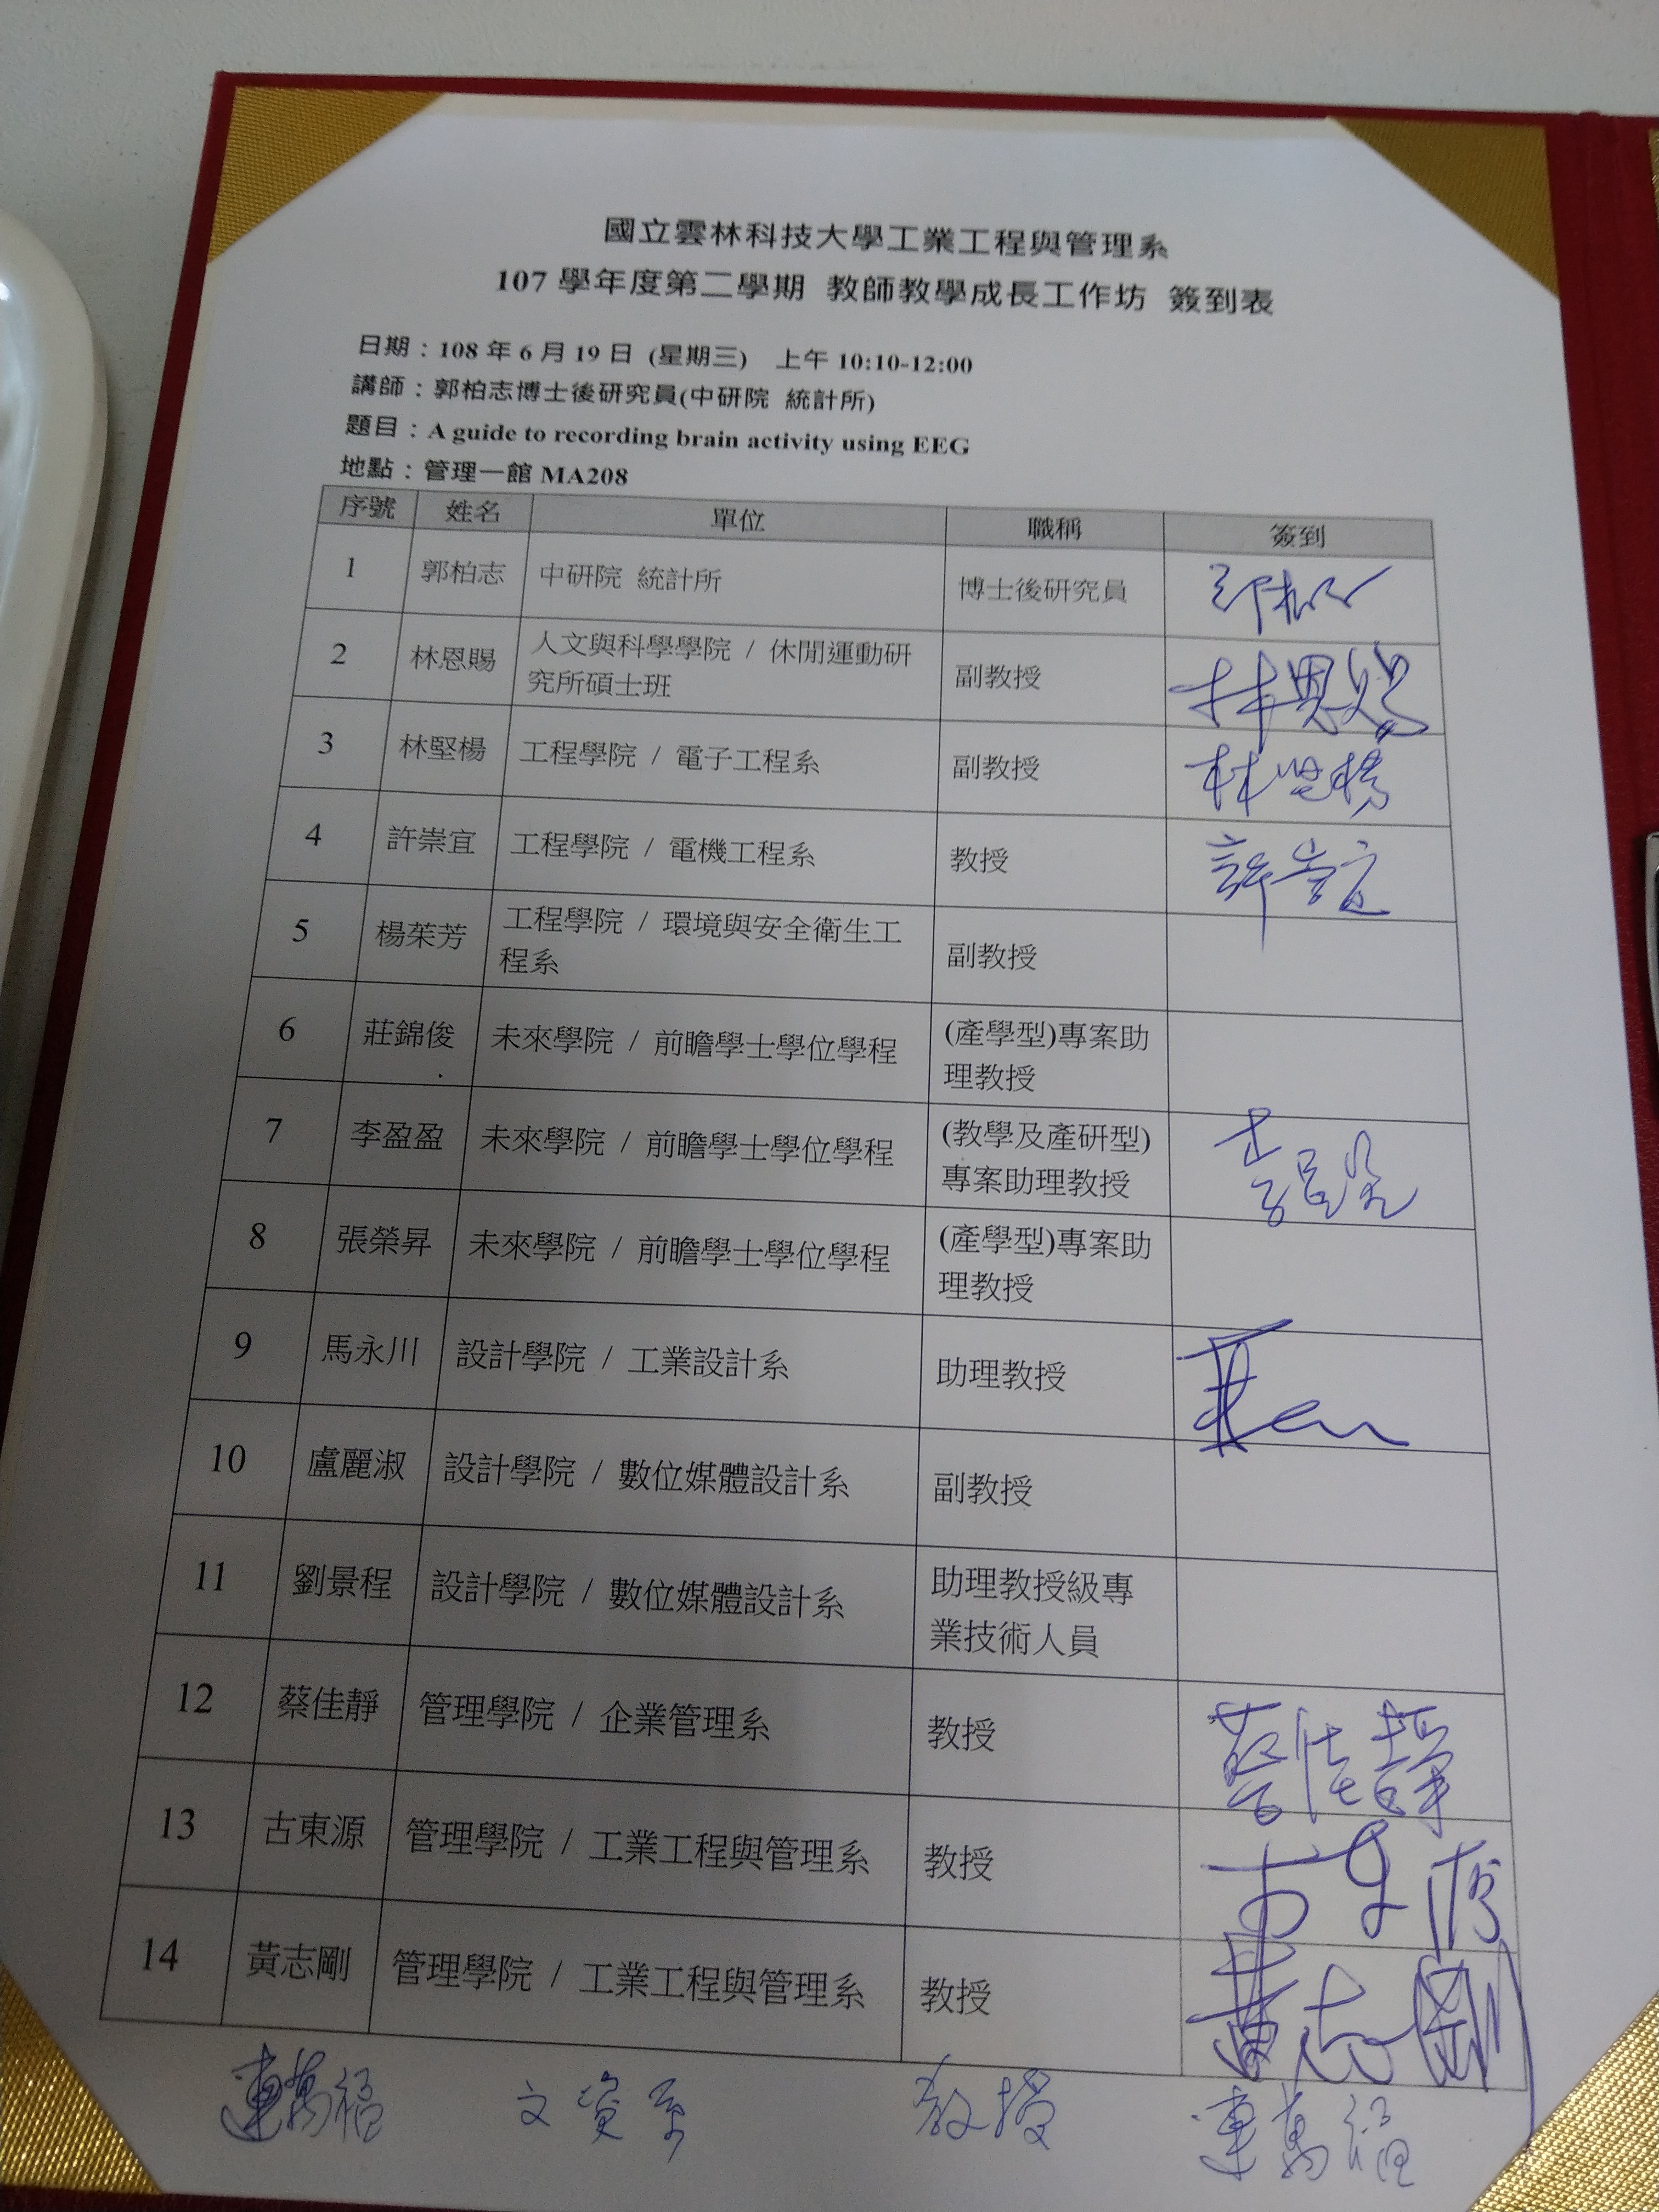 國立雲林科技大學工業工程與管理系
107 學年度第二學期 教師教學成長工作坊 簽到表
日期：108 年 6 月 19 日 (星期三) 上午 10:10-12:00
講師：郭柏志博士後研究員(中研院 統計所)
題目：A guide to recording brain activity using EEG
地點：管理一館 MA208
序號 姓名 單位 職稱 簽到
1 郭柏志 中研院 統計所 博士後研究員 郭柏志
2 林恩賜 人文與科學學院 / 休閒運動研究所碩士班 副教授 林恩賜
3 林堅楊 工程學院 / 電子工程系 副教授 林堅楊
4 許崇宜 工程學院 / 電機工程系 教授 許崇宜
5 楊茱芳 工程學院 / 環境與安全衛生工程系 副教授
6 莊錦俊 未來學院 / 前瞻學士學位學程 (產學型)專案助理教授
7 李盈盈 未來學院 / 前瞻學士學位學程 (教學及產研型)專案助理教授
8 張榮昇 未來學院 / 前瞻學士學位學程 (產學型)專案助理教授
9 馬永川 設計學院 / 工業設計系 助理教授
10 盧麗淑 設計學院 / 數位媒體設計系 副教授
11 劉景程 設計學院 / 數位媒體設計系 助理教授級專業技術人員
12 蔡佳靜 管理學院 / 企業管理系 教授 蔡佳靜
13 古東源 管理學院 / 工業工程與管理系 教授 古東源
14 黃志剛 管理學院 / 工業工程與管理系 教授 黃志剛
連萬福 文資系 教授 連萬福